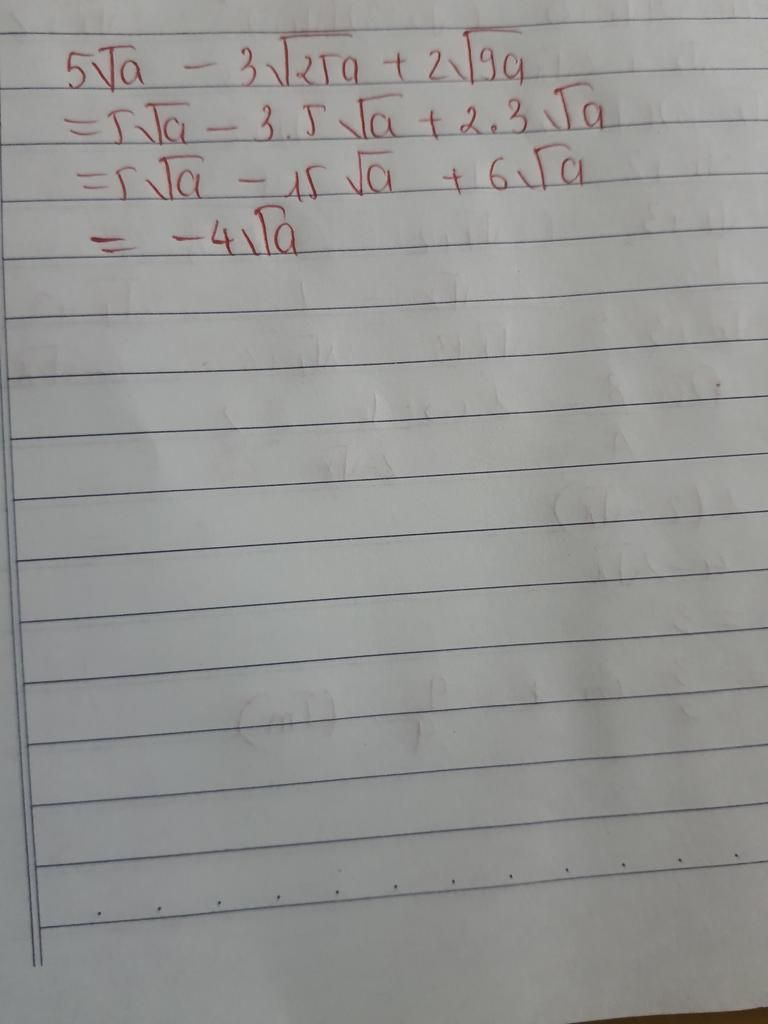 5√a - 3√25a + 2√9a
= 5√a - 3.5√a + 2.3√a
= 5√a - 15√a + 6√a
= -4√a